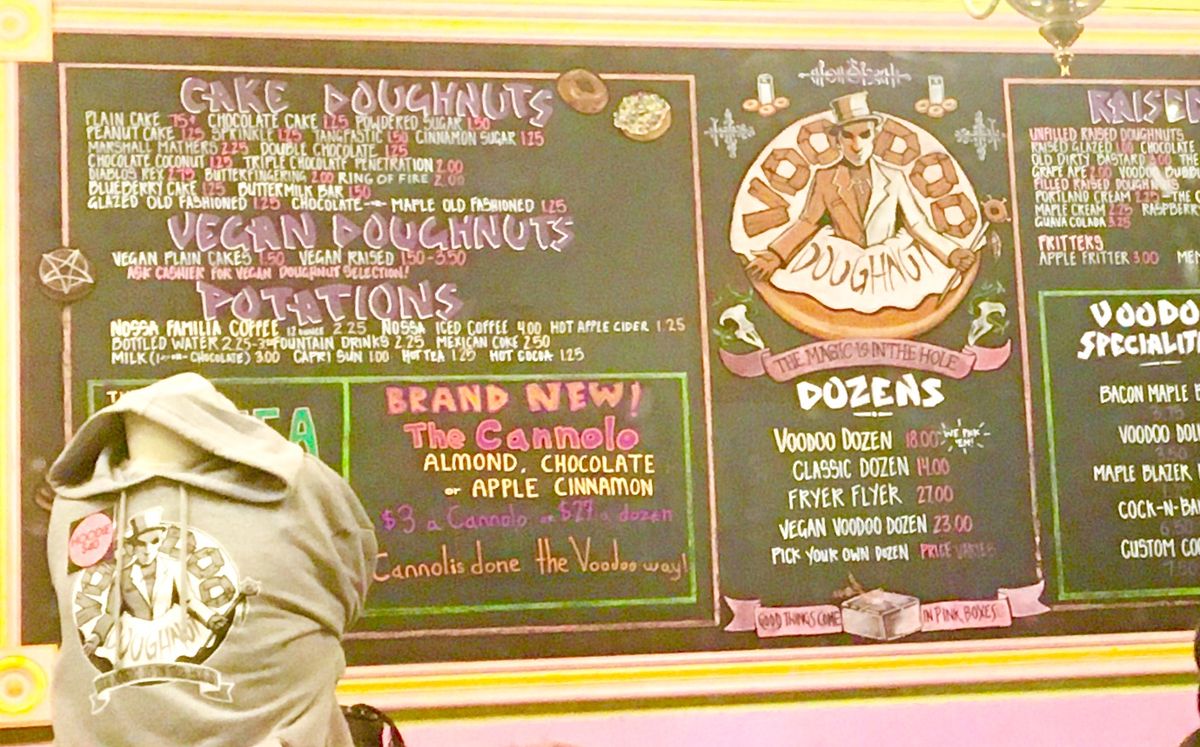 CAKE DOUGHNUTS
PLAIN CAKE .75¢ CHOCOLATE CAKE 1.25 POWDERED SUGAR 1.50
PEANUT CAKE 1.25 SPRINKLE 1.25 TANGTASTIC 1.50 CINNAMON SUGAR 1.25
MARSHALL MATHERS 2.25 DOUBLE CHOCOLATE 1.25
CHOCOLATE COCONUT 1.25 TRIPLE CHOCOLATE PENETRATION 2.00
DIABLOS REX 2.75 BUTTERFINGERING 2.00 RING OF FIRE 2.00
BLUEBERRY CAKE 1.25 BUTTERMILK BAR 1.50
GLAZED OLD FASHIONED 1.25 CHOCOLATE MAPLE OLD FASHIONED 1.25
VEGAN DOUGHNUTS
VEGAN PLAIN CAKES 1.50 VEGAN RAISED 1.50-3.50
ASK CASHIER FOR VEGAN DOUGHNUT SELECTION!
POTATIONS
NOSSA FAMILIA COFFEE 12 OUNCE 2.25 NOSSA ICED COFFEE 4.00 HOT APPLE CIDER 1.25
BOTTLED WATER 2.25 FOUNTAIN DRINKS 2.25 MEXICAN COKE 2.50
MILK CHOCOLATE) 3.00 CAPRI SUN 1.00 HOT TEA 1.25 HOT COCOA 1.25
BRAND NEW!
The Cannolo
ALMOND, CHOCOLATE
or APPLE CINNAMON
$3 a Cannolo or $27 a dozen
Cannolis done the Voodoo way!
HOODIE
$40
VOODOO
DOUGHNUT
VOODOO
DOUGHNUT
THE MAGIC IS IN THE HOLE
DOZENS
VOODOO DOZEN 18.00 WE PICK 'EM!
CLASSIC DOZEN 14.00
FRYER FLYER 27.00
VEGAN VOODOO DOZEN 23.00
PICK YOUR OWN DOZEN PRICE VARIES
GOOD THINGS COME IN PINK BOXES
RAISE
UNFILLED RAISED DOUGHNUTS
RAISED GLAZED 1.00 CHOCOLATE
OLD DIRTY BASTARD 3.00 THE
GRAPE APE 2.00 VOODOO BUBB
FILLED RAISED DOUGHNUTS
PORTLAND CREAM 2.25 THE
MAPLE CREAM 2.25 RASPBERR
GUAVA COLADA 3.25
FRITTERS
APPLE FRITTER 3.00 MEM
VOODO
SPECIALIT
BACON MAPLE B
3.75
VOODOO DOL
3.50
MAPLE BLAZER
COCK-N-BA
6.50
CUSTOM CO
7.50